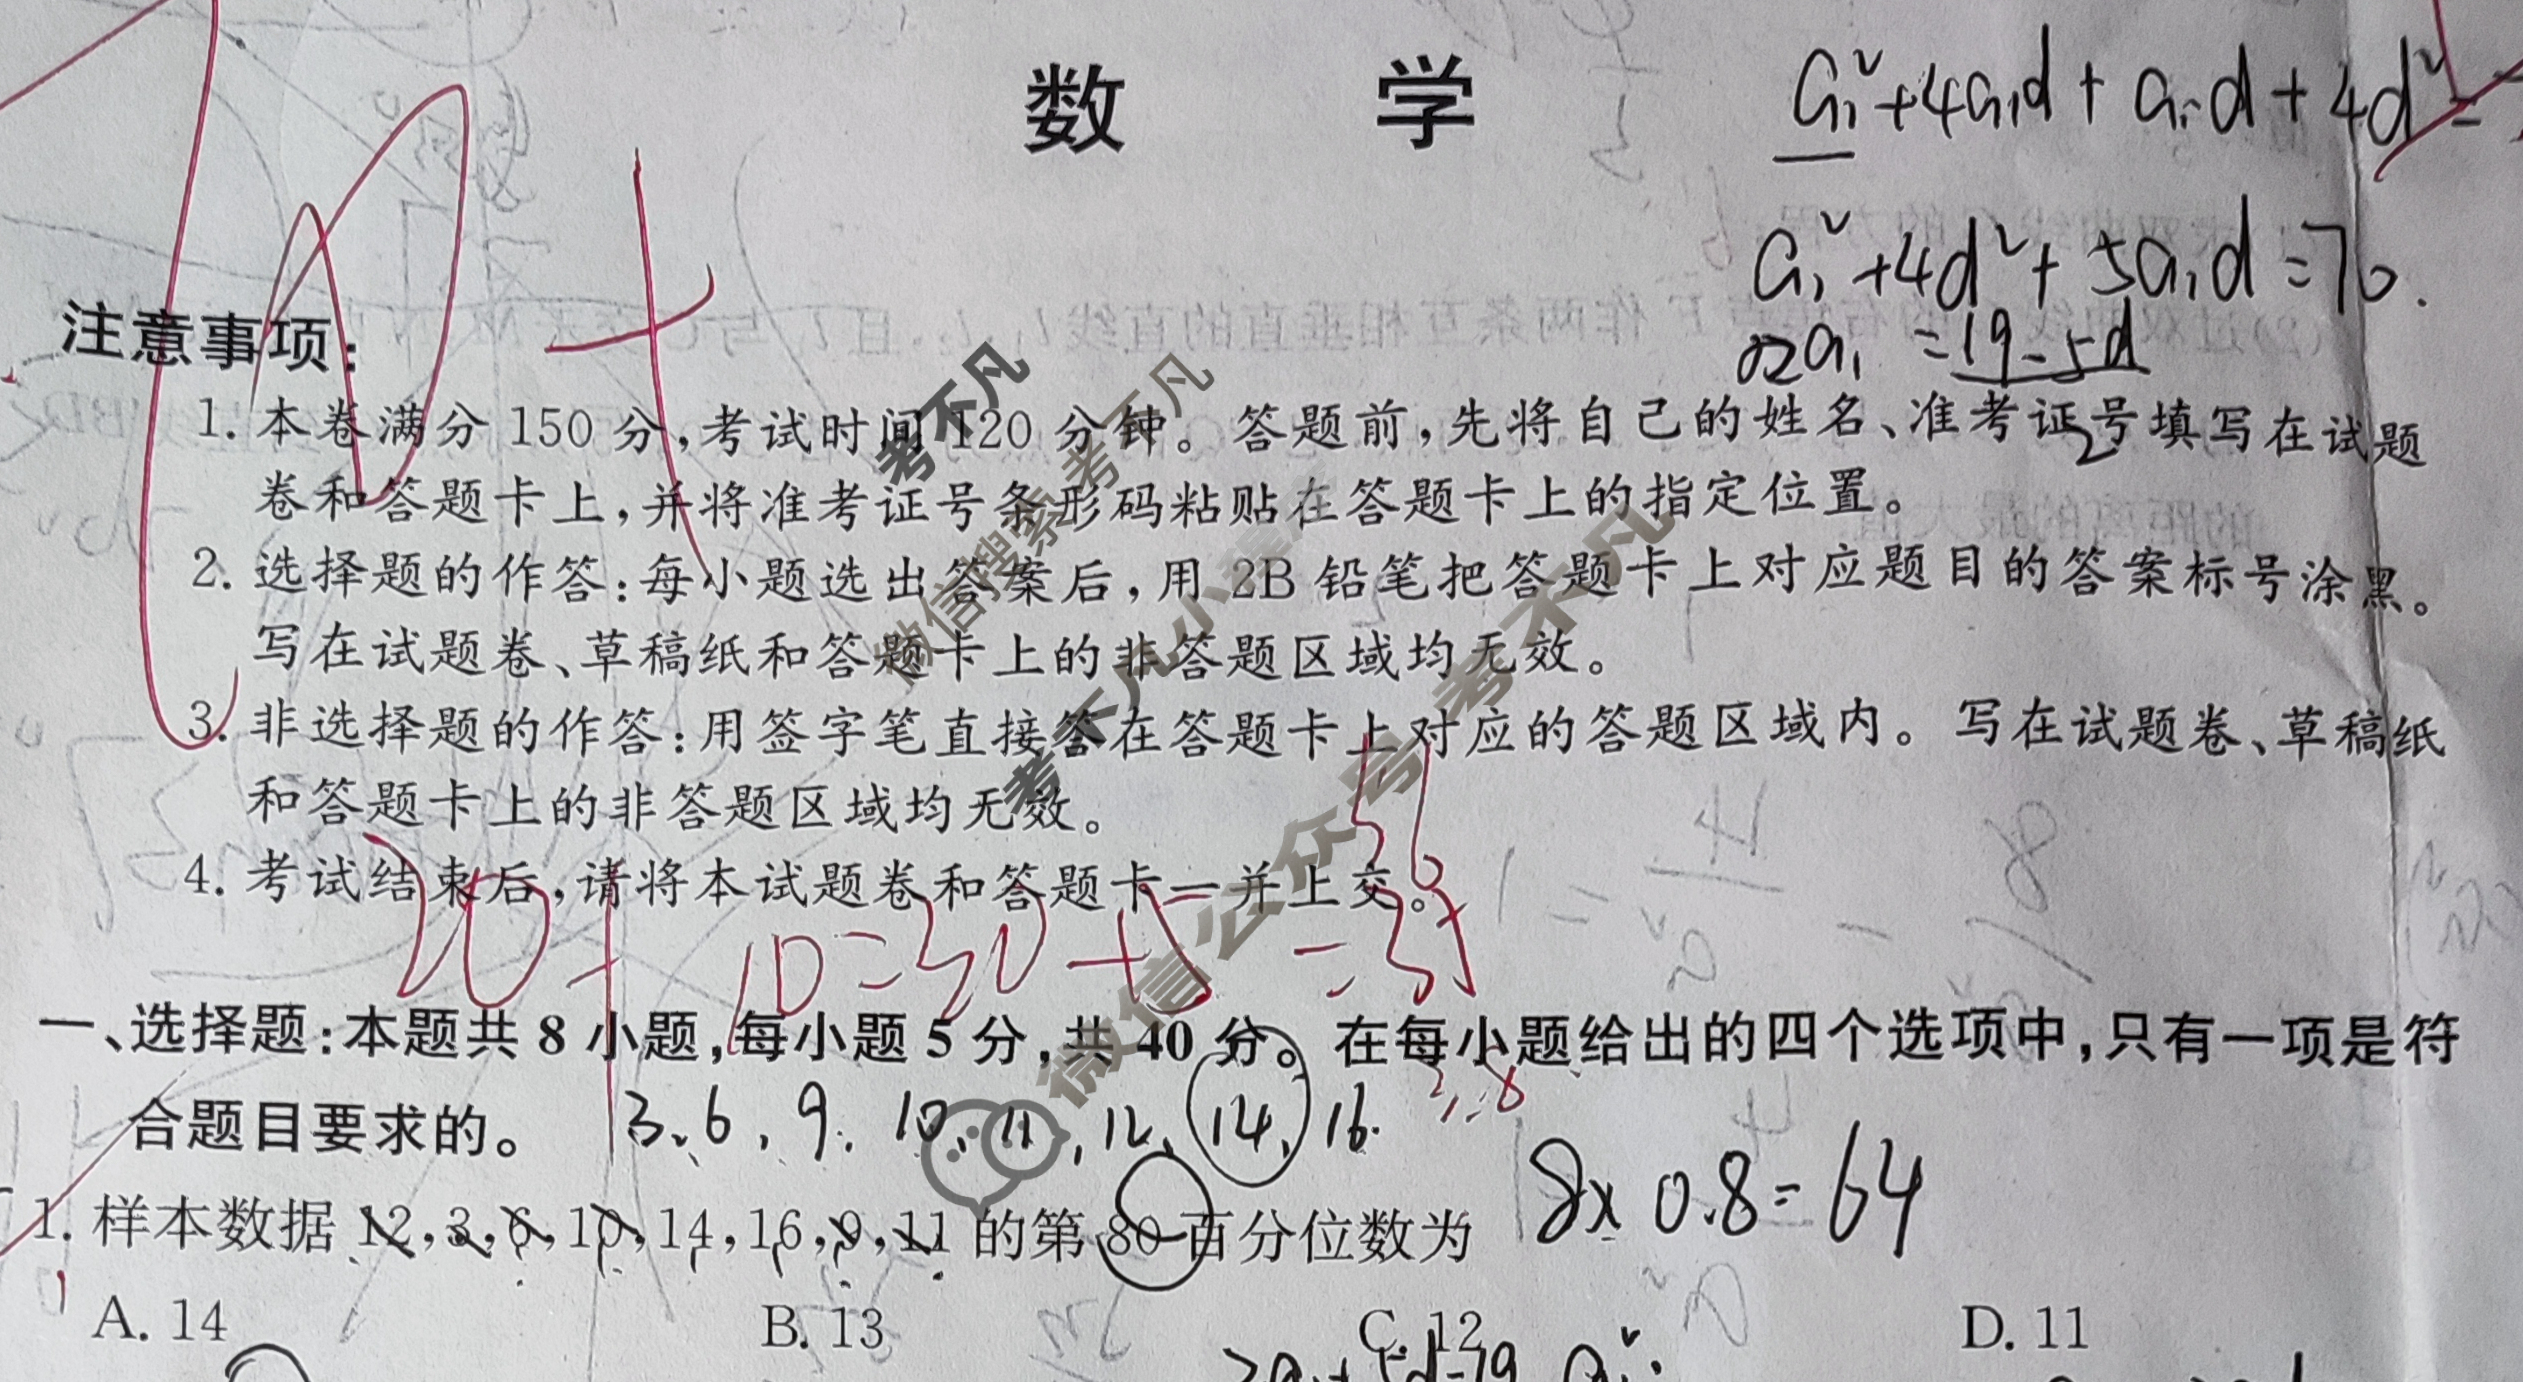 数 学
a₁²+4a₁d+a₁d+4d²=
a₁²+4d²+5a₁d=70.
2a₁=19-5d
2
注意事项:
1. 本卷满分 150 分,考试时间 120 分钟。答题前,先将自己的姓名、准考证号填写在试题
卷和答题卡上,并将准考证号条形码粘贴在答题卡上的指定位置。
2. 选择题的作答:每小题选出答案后,用 2B 铅笔把答题卡上对应题目的答案标号涂黑。
写在试题卷、草稿纸和答题卡上的非答题区域均无效。
3. 非选择题的作答:用签字笔直接答在答题卡上对应的答题区域内。写在试题卷、草稿纸
和答题卡上的非答题区域均无效。
4. 考试结束后,请将本试题卷和答题卡一并上交。
20+10=30+5=35
一、选择题:本题共 8 小题,每小题 5 分,共 40 分。在每小题给出的四个选项中,只有一项是符
合题目要求的。
3、6,9.10、11,12、14,16.
1. 样本数据 12,3,6,10,14,16,9,11 的第 80 百分位数为
8×0.8=64
A. 14 B. 13 C. 12 D. 11
2a₁+5d=19
考不凡
微信搜索 考不凡
考不凡小
微信公众号 考不凡